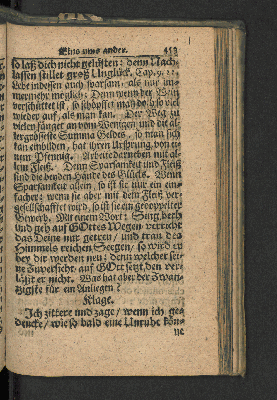 Eins ums ander. 453
so laß dich nicht gelüsten: denn Nach-
lassen stillet groß Unglück. Cap. 9. 21.
Lebe indessen auch sparsam, als nur im-
mermehr möglich: Denn wenn der Wein
verschüttet ist, so schöpffet man doch so viel
wieder auf, als man kan. Der Weg zu
vielen fänget an vom Wenigen und die al-
lergröste Summa Geldes, so man sich
kan einbilden, hat ihren Ursprung von ei-
nem Pfennig. Arbeite darneben mit al-
lem Fleiß. Denn Sparsamkeit und Fleiß
sind die beyden Hände des Glücks. Wenn
Sparsamkeit allein, so ist sie nur ein ein-
facher; wenn sie aber mit dem Fleiß ver-
gesellschafftet wird, so ist sie ein gedoppelter
Gewerb. Mit einem Wort: Sing, beth
und geh auf GOttes Wegen verricht
das Deine nur getreu / und trau des
Himmels reichen Seegen, so wird er
bey dir werden neu: denn welcher sei-
ne Zuversicht auf GOtt setzt, den ver-
läßt er nicht. Was hat aber der Zwan-
zigste für ein Anliegen?
Klage.
Ich zittere und zage / wenn ich ge-
dencke / wie so bald eine Unruhe kön-
ne